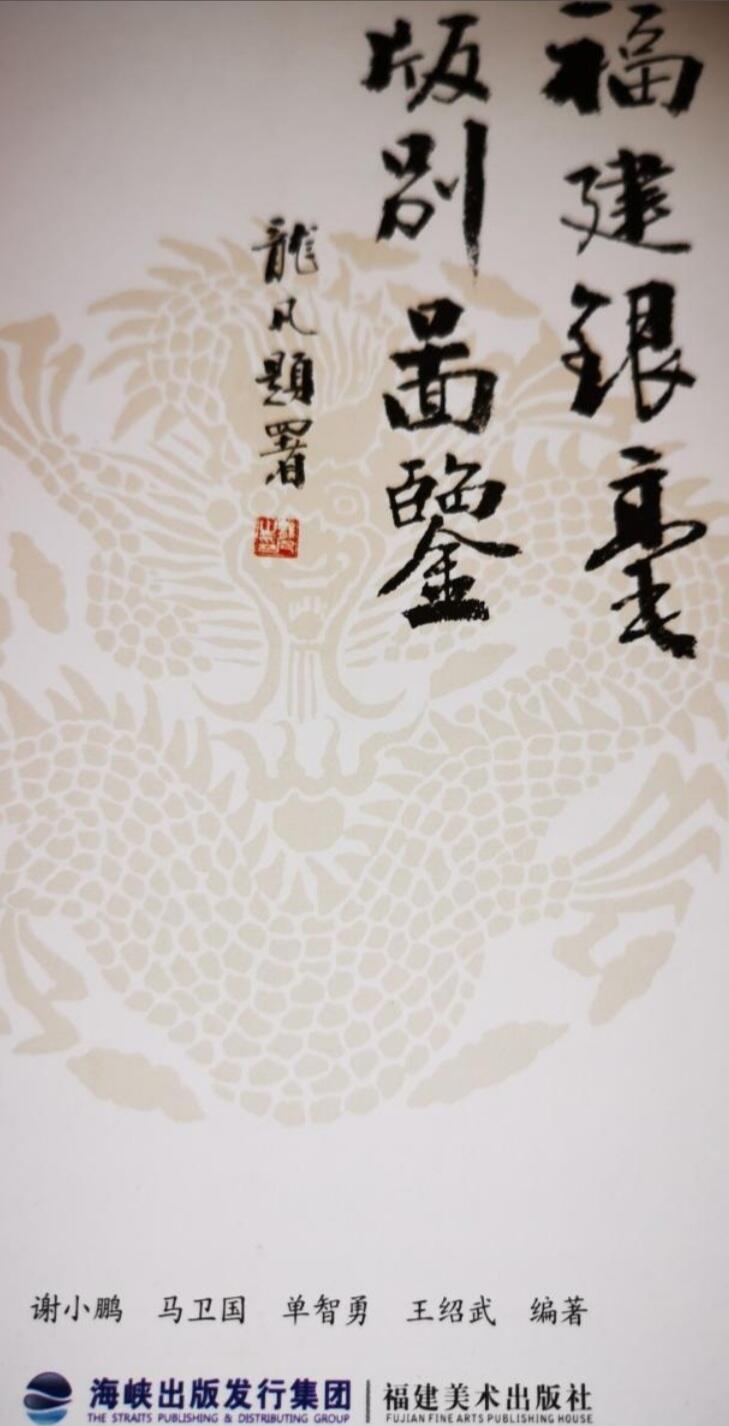 福建银毫
版别图鑒
龍凡題署
谢小鹏 马卫国 单智勇 王绍武 编著
海峡出版发行集团
THE STRAITS PUBLISHING & DISTRIBUTING GROUP
福建美术出版社
FUJIAN FINE ARTS PUBLISHING HOUSE